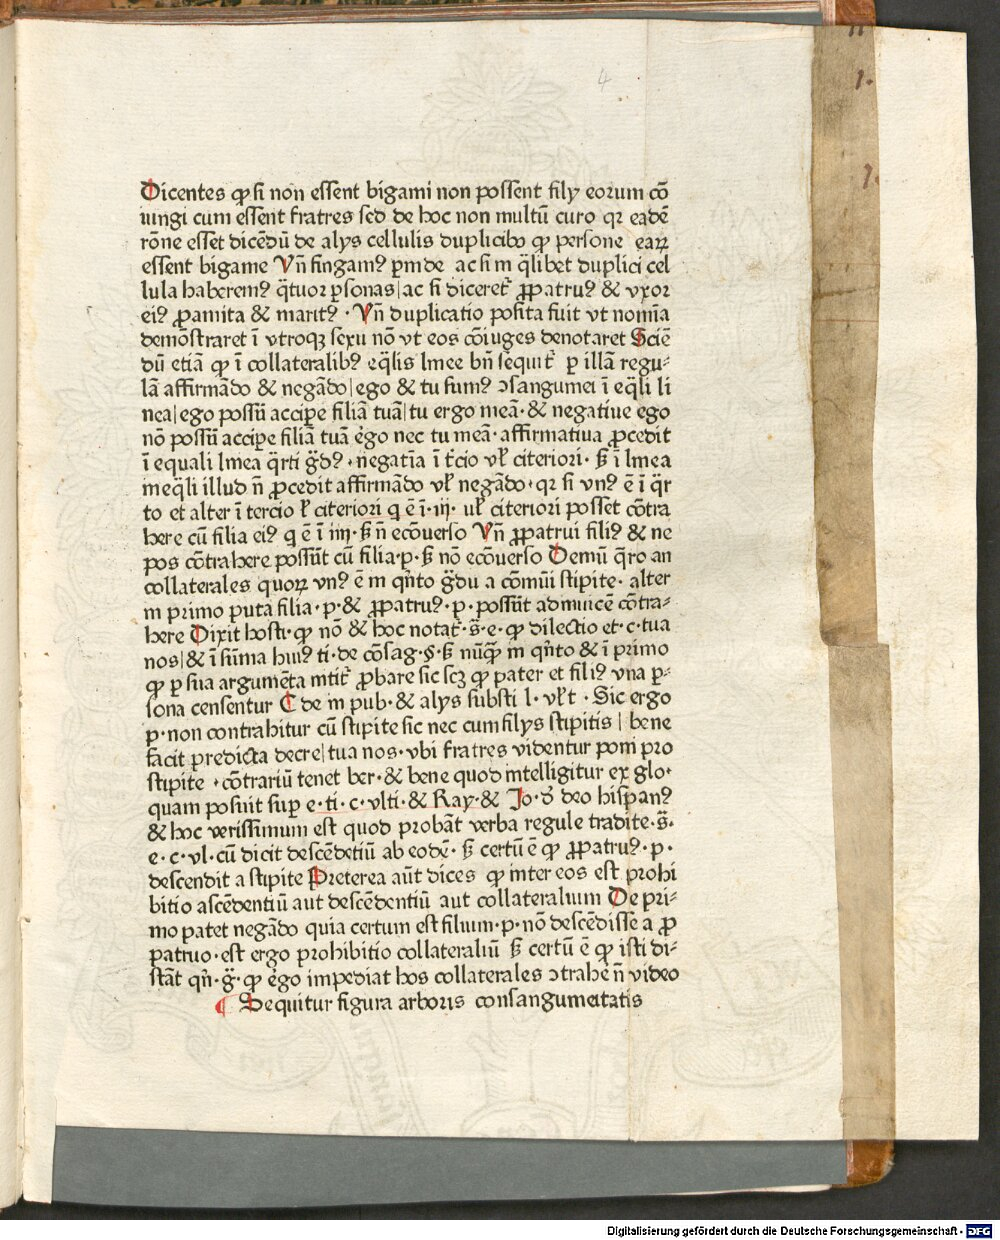 4
Dicentes ꝙ si non essent bigami non possent filij eorum cō
iungi cum essent fratres sed de hoc non multū curo qꝛ eadē
rōne esset dicēdū de alijs cellulis duplicibꝯ ꝙ persone eaꝝ
essent bigame Vn̄ fingamꝰ ꝑinde ac si in q̄libet duplici cel
lula haberemꝰ q̄tuor ꝑsonas| ac si diceret᷑ ꝓpatruꝰ & vxor
eiꝰ ꝓamita & maritꝰ · Vn̄ duplicatio posita fuit vt nomīa
demōstraret ī vtroqꝫ sexu nō vt eos cōiuges denotaret Sciē
dū etiā ꝙ ī collateralibꝰ eq̄lis linee bn̄ seq̄uit᷑ ꝑ illā regu⸗
lā affirmādo & negādo| ego & tu sumꝰ ↄsanguinei ī eq̄li li
nea| ego possū accipe filiā tuā| tu ergo meā· & negatiue ego
nō possū accipe filiā tuā ergo nec tu meā· affirmatiua ꝓcedit
ī equali linea q̄rti ḡdꝰ · negatīa ī t̄cio vł citeriori · s̄ ī linea
ineq̄li illud n̄ ꝓcedit affirmādo vł negādo· qꝛ si vnꝰ ē ī q̄r
to et alter ī tercio ł citeriori q ē ī·iij· uł citeriori posset cōtra
here cū filia eiꝰ q ē ī iiij· s̄ n̄ ecōuerso Vn̄ ꝓpatrui filiꝰ & ne
pos cōtrahere possūt cū filia·p· s̄ nō ecōuerso Demū q̄ro an
collaterales quoꝝ vnꝰ ē in qn̄to ḡdu a cōmūi stipite· alter
in primo puta filia·p·& ꝓpatruꝰ·p· possūt adinuicē cōtra⸗
here Dixit hosti·ꝙ nō & hoc notat᷑·s̄·e·ꝙ dilectio et·c·tua
nos| & ī sūma huiꝰ ti·de cōsag·§·s̄ nūq̄ in qn̄to & ī primo
ꝙ ꝑ sua argumēta nitit᷑ ꝓbare sic scꝫ ꝙ pater et filiꝰ vna ꝑ⸗
sona censentur C de in pub·& alijs substi l·vłt · Sic ergo
p·non contrahitur cū stipite sic nec cum filijs stipitis | bene
facit predicta decre| tua nos·vbi fratres videntur poni pro
stipite · cōtrariū tenet ber·& bene quod intelligitur ex glo·
quam posuit sup e·ti·c·vlti·& Ray·& Jo·d̄ deo hispanꝰ
& hoc verissimum est quod probāt verba regule tradite·s̄·
e·c·vl·cū dicit descēdetiū ab eodē· s̄ certū ē ꝙ ꝓpatruꝰ·p·
descendit a stipite Preterea aūt dices ꝙ inter eos est prohi
bitio ascēdentiū aut descēdentiū aut collateralium De pri⸗
mo patet negādo quia certum est filium·p·nō descēdisse a ꝓ
patruo·est ergo prohibitio collateraliū s̄ certū ē ꝙ isti di⸗
stāt qn̄·ḡ·ꝙ ergo impediat hos collaterales ↄtrahē n̄ video
¶ Sequitur figura arboris consanguinitatis
Digitalisierung gefördert durch die Deutsche Forschungsgemeinschaft - DFG